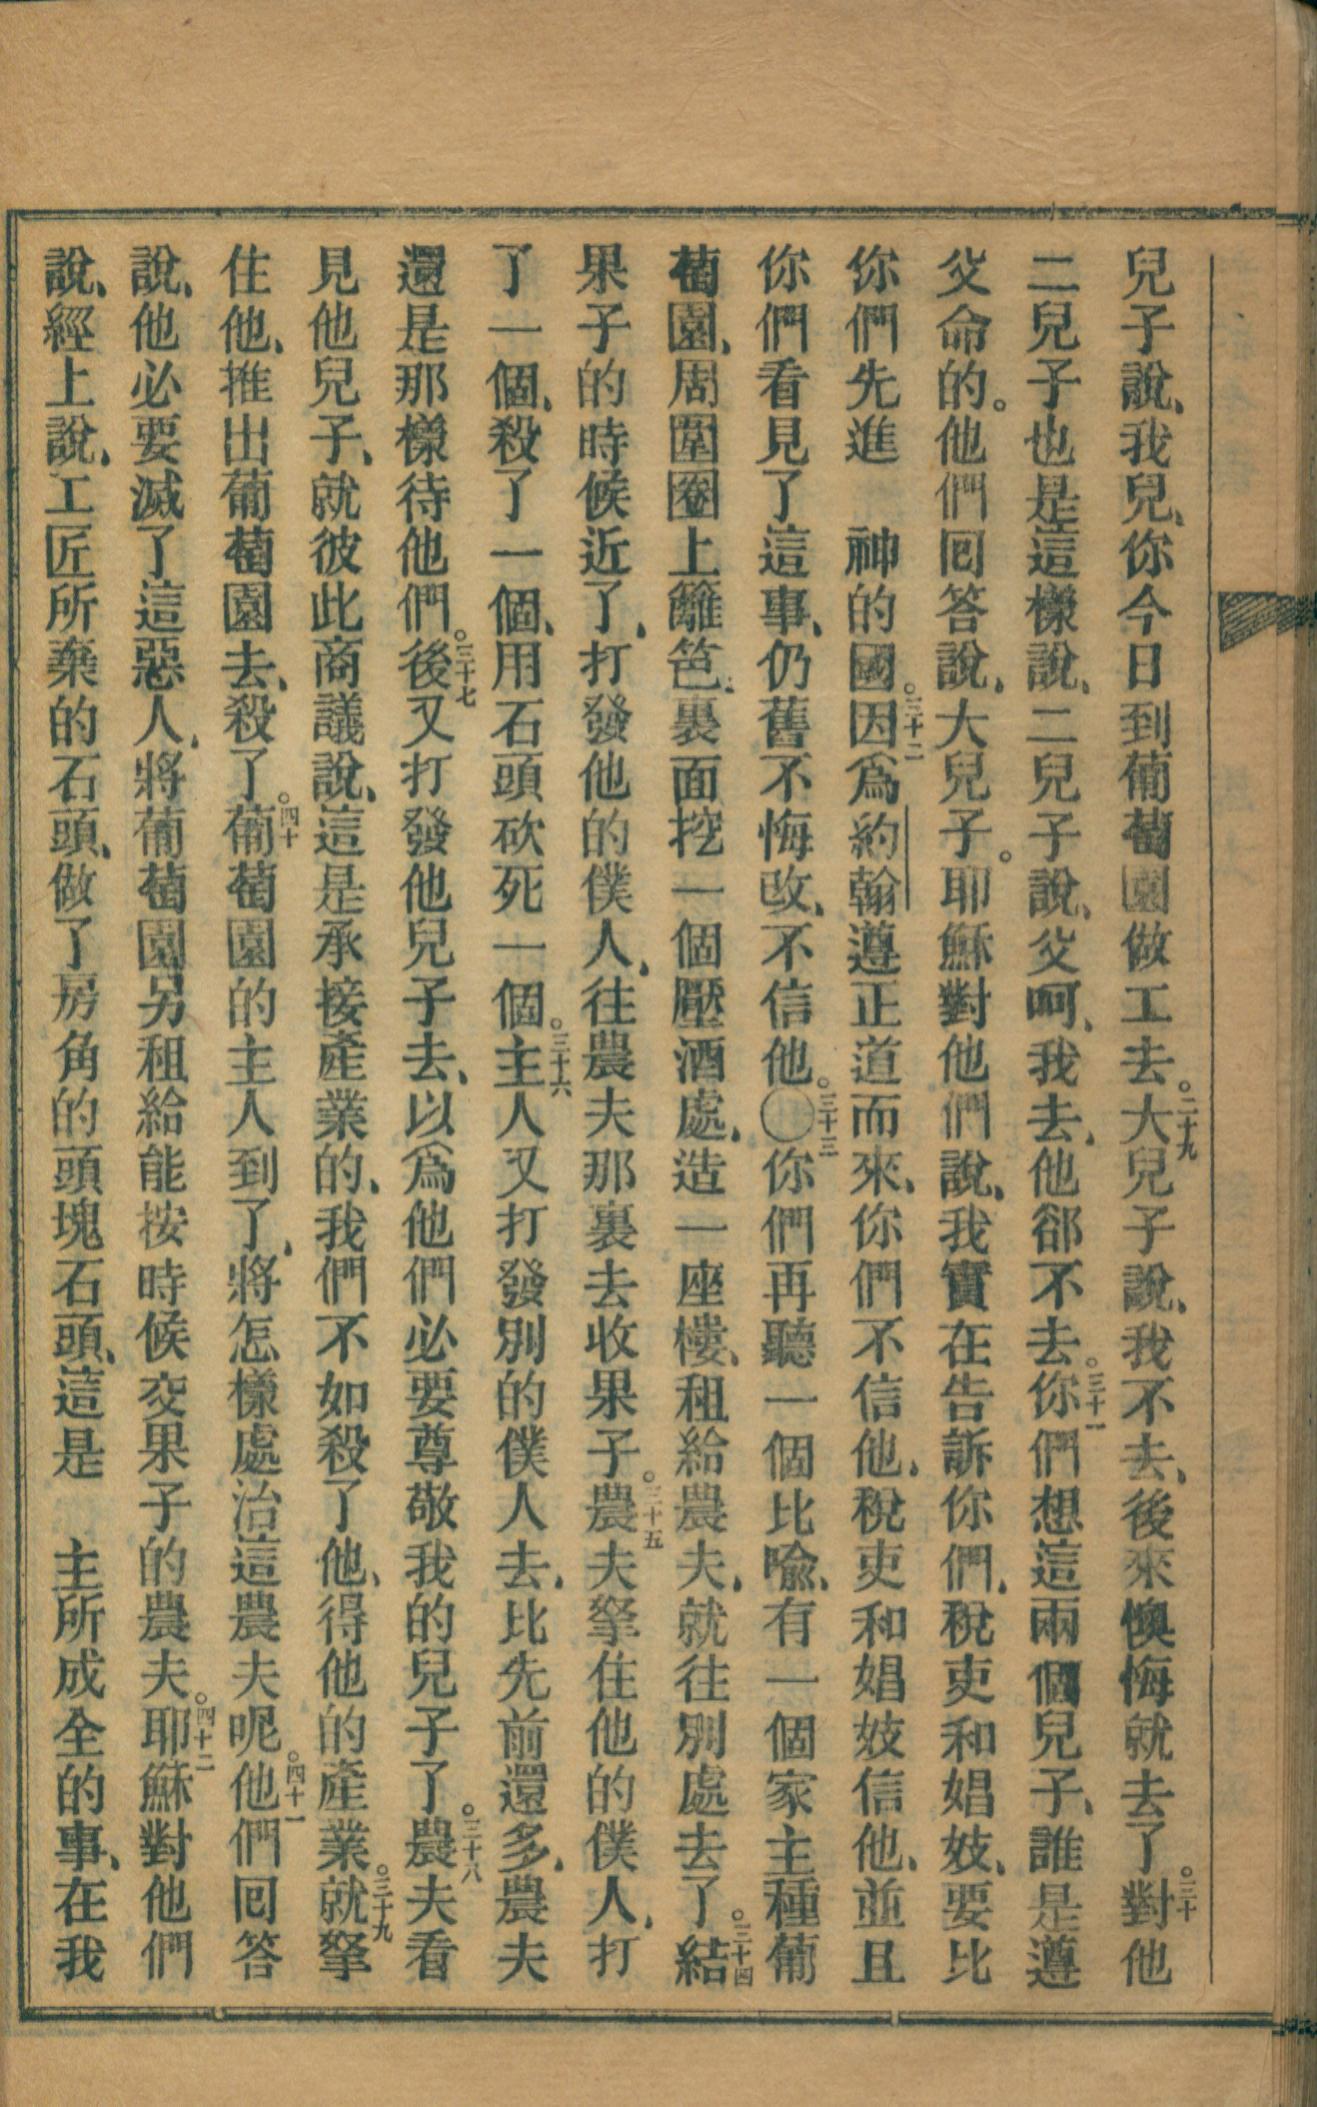 兒子說、我兒、你今日到葡萄園做工去。二十九大兒子說、我不去、後來懊悔就去了。三十對他
二兒子也是這樣說、二兒子說、父呵、我去、他郤不去。三十一你們想這兩個兒子、誰是遵
父命的。他們回答說、大兒子。耶穌對他們說、我實在告訴你們、稅吏和娼妓、要比
你們先進　神的國。三十二因爲約翰遵正道而來、你們不信他、稅吏和娼妓信他、並且
你們看見了這事、仍舊不悔改、不信他。三十三〇你們再聽一個比喩、有一個家主種葡
萄園、周圍圈上籬笆、裏面挖一個壓酒處、造一座樓、租給農夫、就往別處去了。三十四結
果子的時候近了、打發他的僕人、往農夫那裏去收果子。三十五農夫拏住他的僕人、打
了一個、殺了一個、用石頭砍死一個。三十六主人又打發別的僕人去、比先前還多、農夫
還是那樣待他們。三十七後又打發他兒子去、以爲他們必要尊敬我的兒子了。三十八農夫看
見他兒子、就彼此商議說、這是承接產業的、我們不如殺了他、得他的產業。三十九就拏
住他、推出葡萄園去、殺了。四十葡萄園的主人到了、將怎樣處治這農夫呢。四十一他們回答
說、他必要滅了這惡人、將葡萄園另租給能按時候交果子的農夫。四十二耶穌對他們
說、經上說、工匠所棄的石頭、做了房角的頭塊石頭、這是　主所成全的事、在我